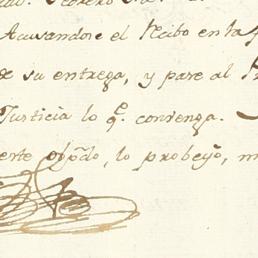 Acusandose el Recibo en la
de su entrega, y pase al
Justicia lo q.e convenga.
lo probeyo, m